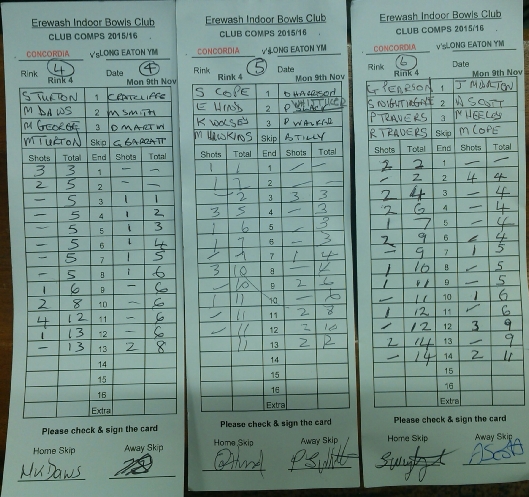 Erewash Indoor Bowls Club
CLUB COMPS 2015/16
CONCORDIA v's LONG EATON YM
Rink 4 Date 4
Rink 4 Mon 9th Nov
S TURTON 1 C RATCLIFFE
M DAWS 2 M SMITH
M GEORGE 3 D MARTIN
M TURTON Skip G BARRATT
Shots Total End Shots Total
3 3 1 - -
2 5 2 - -
- 5 3 1 1
- 5 4 1 2
- 5 5 1 3
- 5 6 1 4
- 5 7 1 5
- 5 8 1 6
1 6 9 - 6
2 8 10 - 6
4 12 11 - 6
1 13 12 - 6
- 13 13 2 8
14
15
16
Extra
Please check & sign the card
Home Skip Away Skip
M K Daws
Erewash Indoor Bowls Club
CLUB COMPS 2015/16
CONCORDIA v's LONG EATON YM
Rink 5 Date
Rink 4 Mon 9th Nov
S COPE 1
E HIND 2 P
K 3 P
M HAWKINS Skip
Shots Total End Shots Total
1 1 1 - -
1 2 2 - -
- 2 3 3 3
3 5 4 - 3
1 6 5 - 3
1 7 6 - 3
- 7 7 1 4
3 10 8 - 4
- 10 9 2 6
1 11 10 - 6
- 11 11 2 8
- 11 12 2 10
11 13 2
14
15
16
Extra
Please check & sign the card
Home Skip Away Skip
Erewash Indoor Bowls Club
CLUB COMPS 2015/16
CONCORDIA v's LONG EATON YM
Rink 6 Date
Rink 4 Mon 9th Nov
G PEARSON 1 J M BARTON
S NIGHTINGALE 2 A SCOTT
P TRAVERS 3 M HEELEY
R TRAVERS Skip M COPE
Shots Total End Shots Total
2 2 1 - -
- 2 2 4 4
2 4 3 - 4
2 6 4 - 4
1 7 5 - 4
2 9 6 - 4
- 9 7 1 5
1 10 8 - 5
1 11 9 - 5
- 11 10 1 6
1 12 11 - 6
- 12 12 3 9
2 14 13 - 9
- 14 14 2 11
15
16
Extra
Please check & sign the card
Home Skip Away Skip
A Scott